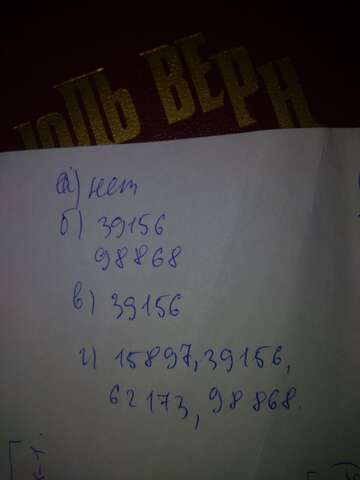 ЮЛЬ ВЕРН
а) нет
б) 39156
98868
в) 39156
г) 15897, 39156,
62173, 98868.